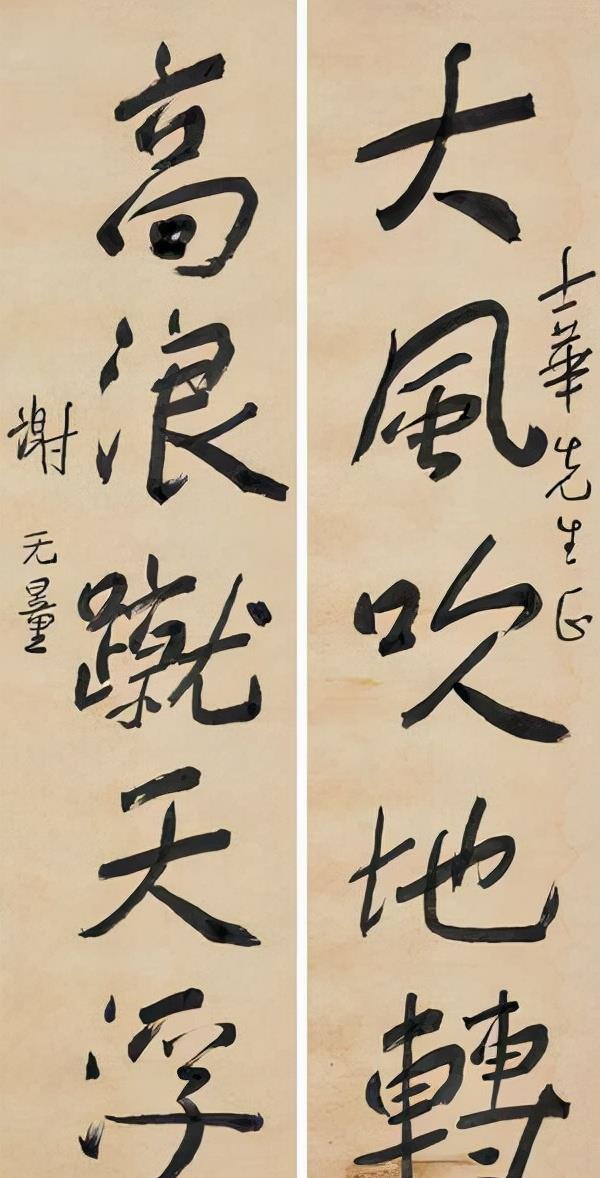 士華先生正
大風吹地轉
高浪蹴天浮
謝无量